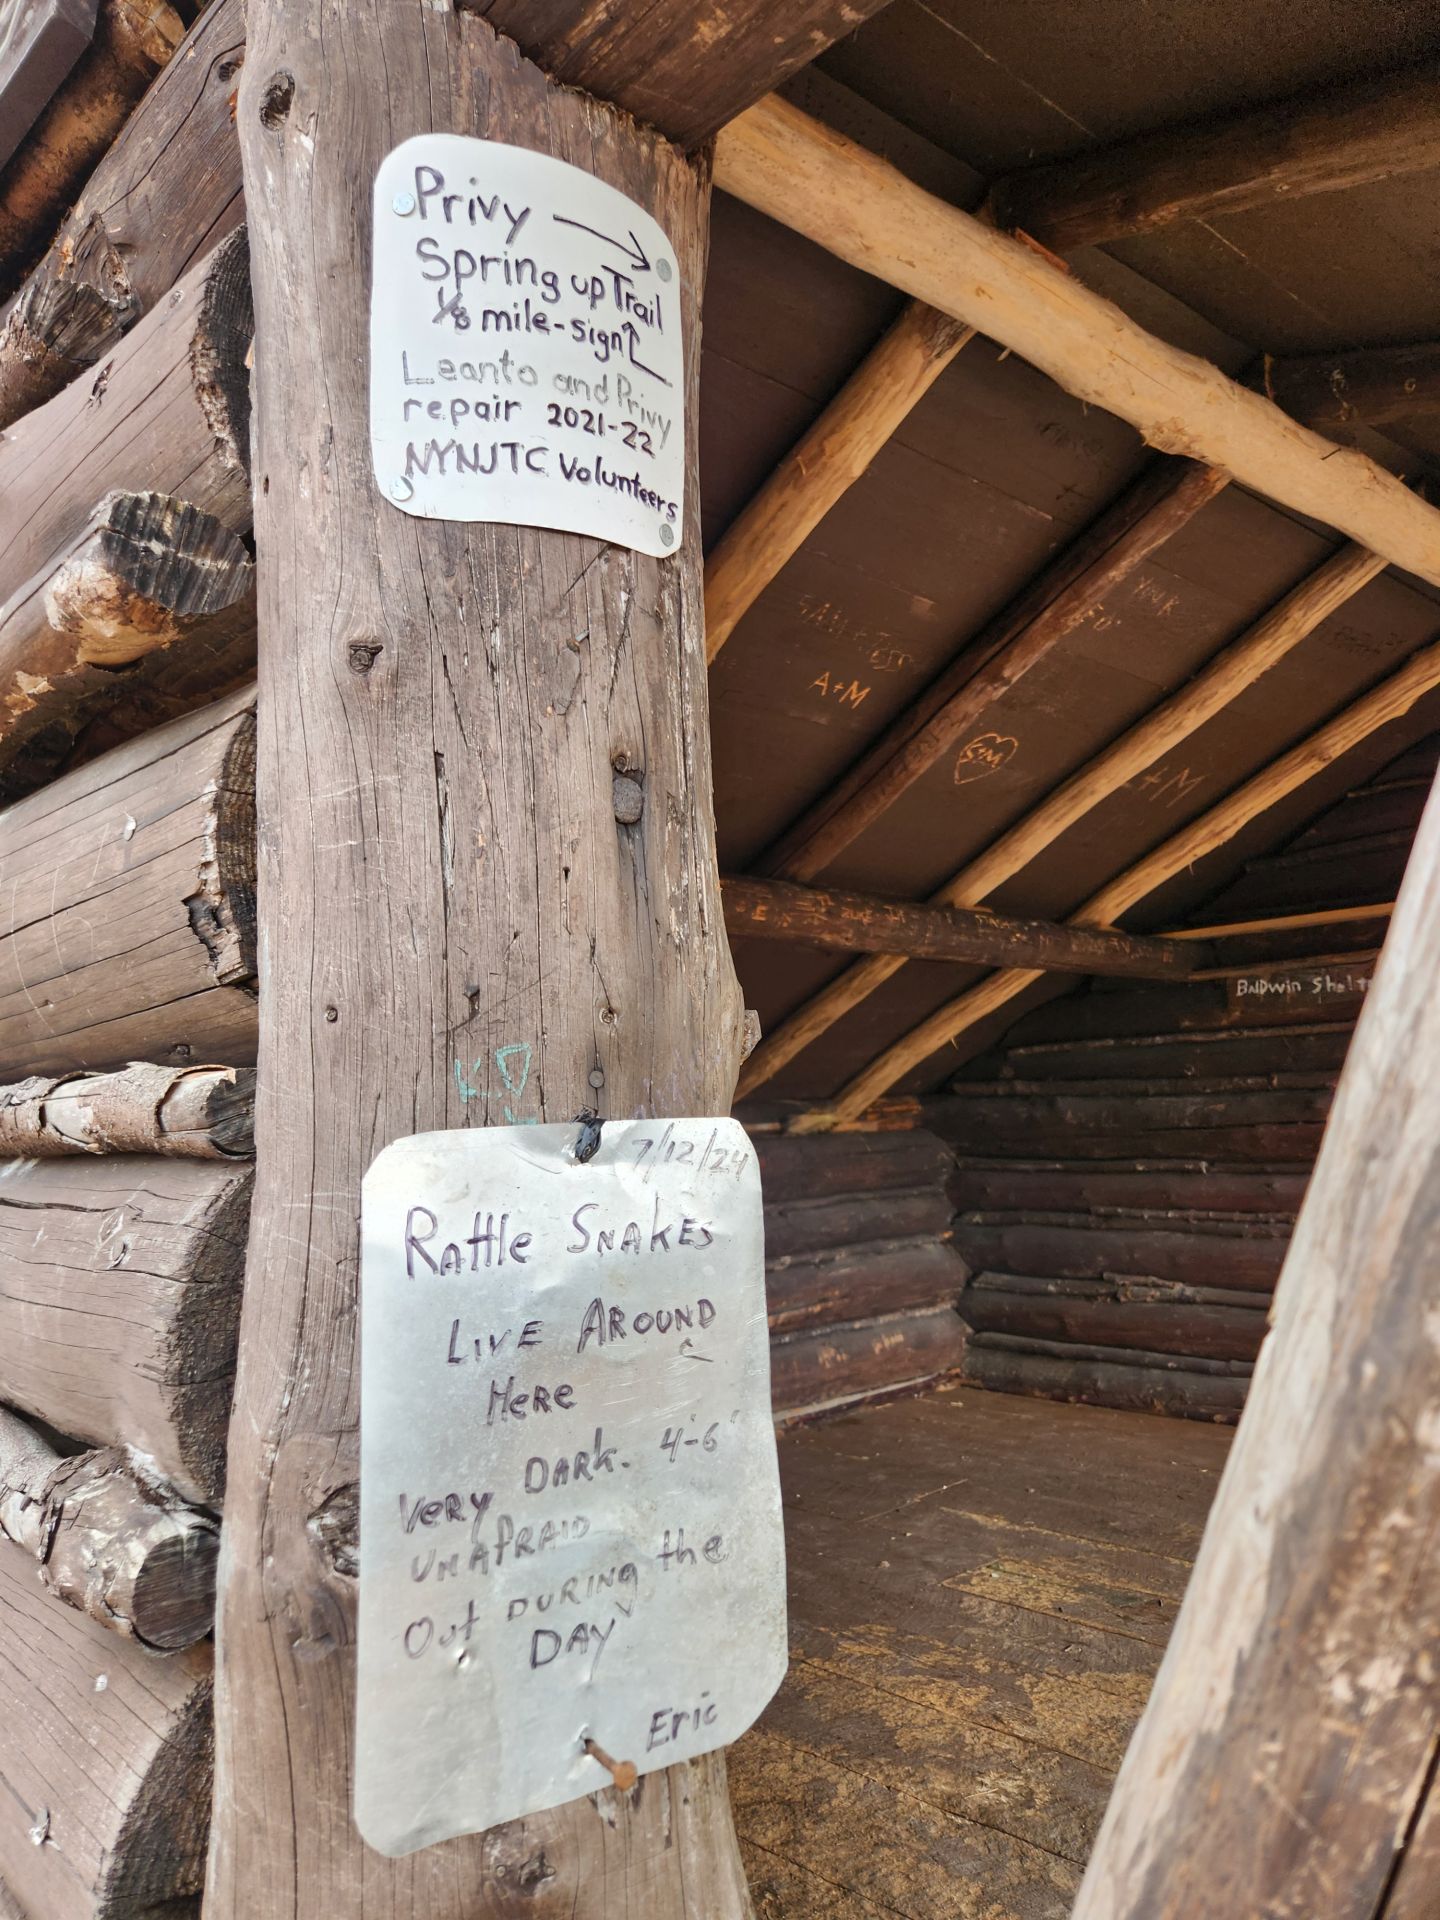 Privy
Spring up Trail
1/8 mile-sign
Leanto and Privy
repair 2021-22
NYNJTC Volunteers
SAM + JESS
A+M
S+M
+M
BNDwin Shelt
K.D
7/12/24
Rattle SNAKES
LIVE AROUND
Here
DARK. 4'-6'
Very
UNAFRAID
Out DURING the
DAY
Eric